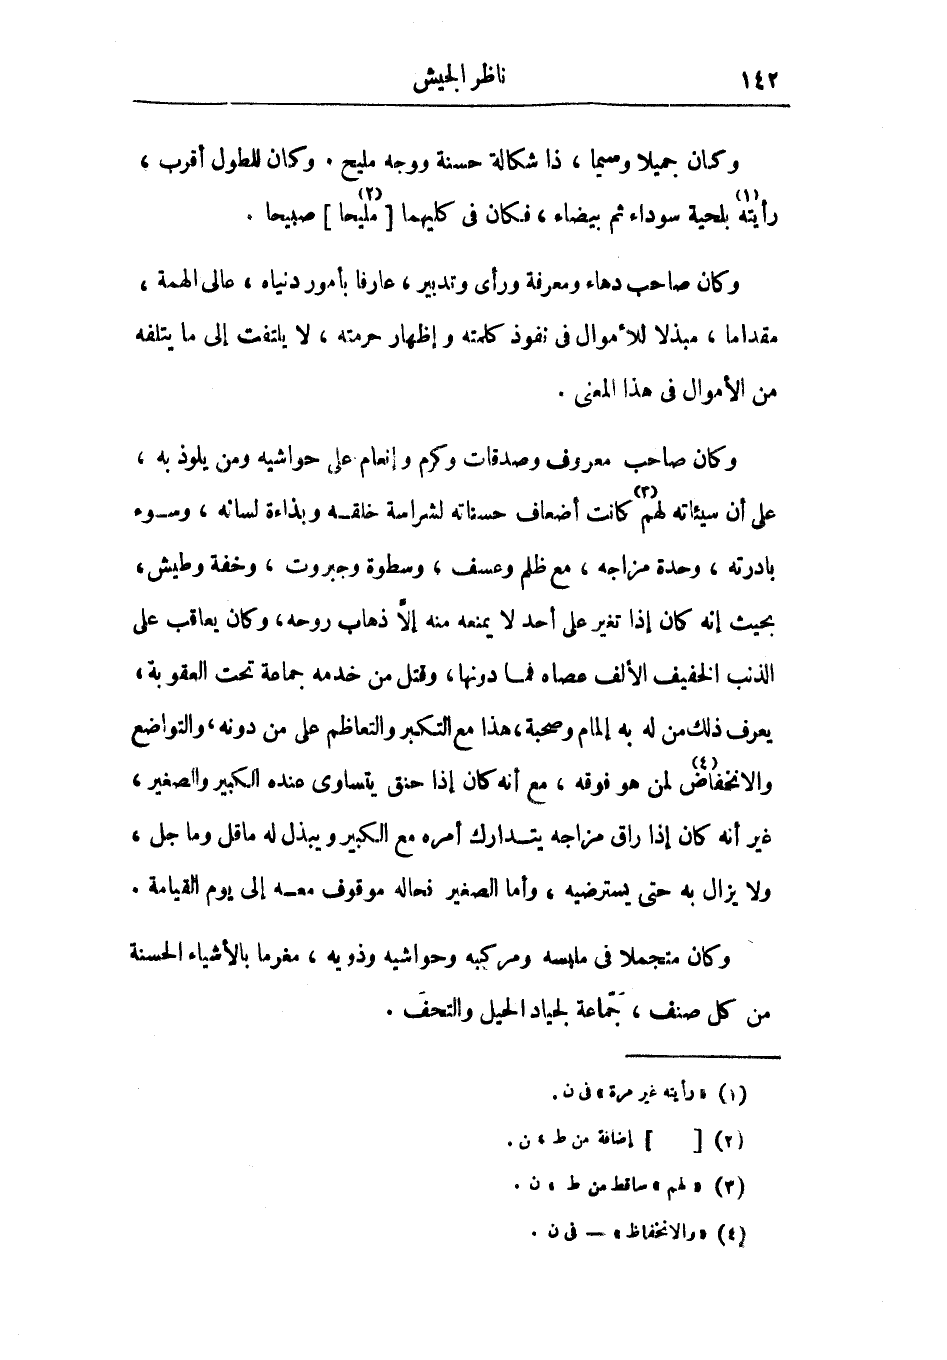 ١٤٢ ناظر الجيش
وكان جميلا وسيما ، ذا شكالة حسنة ووجه مليح . وكان للطول أقرب ،
رأيته (١) بلحية سوداء ثم بيضاء ، فكان فى كليهما [ مليحا (٢) ] صبيحا .
وكان صاحب دهاء ومعرفة ورأى وتدبير ، عارفا بأمور دنياه ، عالى الهمة ،
مقداما ، مبذلا للأموال فى نفوذ كلمته وإظهار حرمته ، لا يلتفت إلى ما يتلفه
من الأموال فى هذا المعنى .
وكان صاحب معروف وصدقات وكرم وإنعام على حواشيه ومن يلوذ به ،
على أن سيئاته لهم (٣) كانت أضعاف حسناته لشراسة خلقـه وبذاءة لسانه ، وسـوء
بادرته ، وحدة مزاجه ، مع ظلم وعسف ، وسطوة وجبروت ، وخفة وطيش ،
بحيث إنه كان إذا تغير على أحد لا يمنعه منه إلاَّ ذهاب روحه ، وكان يعاقب على
الذنب الخفيف الألف عصاه فمـا دونها ، وقتل من خدمه جماعة تحت العقوبة ،
يعرف ذلك من له به إلمام وصحبة ، هذا مع التكبر والتعاظم على من دونه ، والتواضع
والانخفاض (٤) لمن هو فوقه ، مع أنه كان إذا حنق يتساوى عنده الكبير والصغير ،
غير أنه كان إذا راق مزاجه يتـدارك أمره مع الكبير ويبذل له ماقل وما جل ،
ولا يزال به حتى يسترضيه ، وأما الصغير فحاله موقوف معـه إلى يوم القيامة .
وكان متجملا فى ملبسه ومركبه وحواشيه وذويه ، مغرما بالأشياء الحسنة
من كل صنف ، جَمَّاعة لجياد الخيل والتحفَ .
(١) « رأيته غير مرة » فى ن .
(٢) [ ] إضافة من ط ، ن .
(٣) « لهم » ساقط من ط ، ن .
(٤) « والانخفاظ » — فى ن .